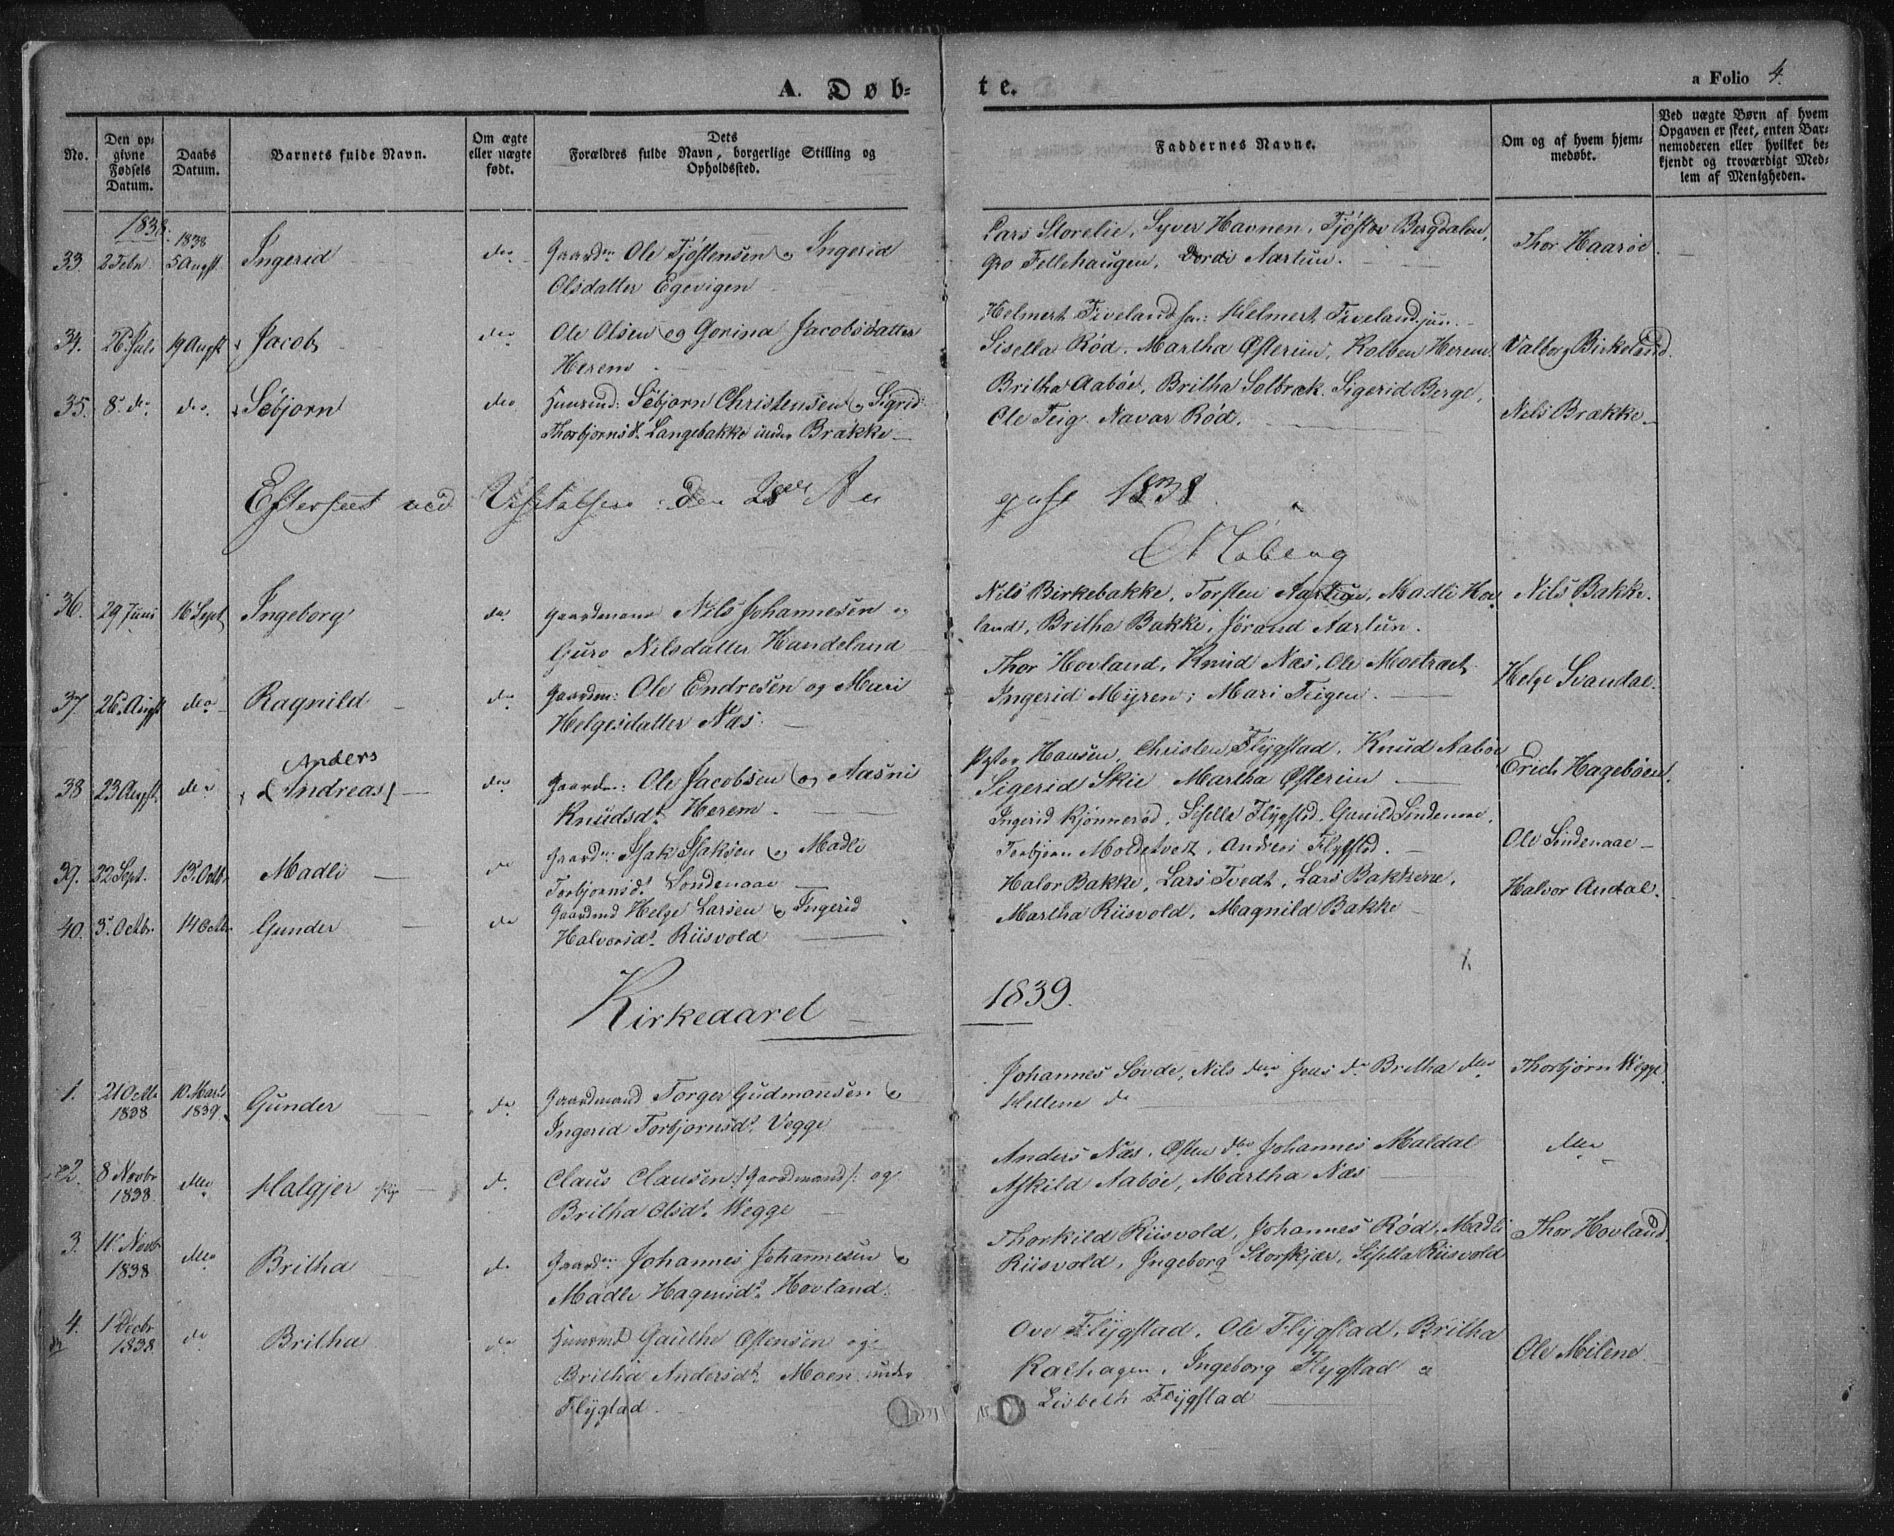 A. Døb-
te.
a Folio 4.
No.
Den op-
givne
Fødsels
Datum.
Daabs
Datum.
Barnets fulde Navn.
Om ægte
eller uægte
født.
Dets
Forældres fulde Navn, borgerlige Stilling og
Opholdssted.
Faddernes Navne.
Om og af hvem hjem-
medøbt.
Ved uægte Børn af hvem
Opgaven er skeet, enten Bar-
nemoderen eller hvilket be-
kjendt og troværdigt Med-
lem af Menigheden.
1838.
1838
33. 2 Febr 5 Augst. Ingerid do Gaardm Ole Tjøstensen og Ingerid
Olsdatter Egevigen
Lars Storelie, Syver Havnen, Tjøstov Bergdalen,
Gro Fellehaugen, Dordi Aartun.
Thor Haarøe
34. 26 Juli 19 Augst Jacob do Ole Olsen og Gorina Jacobsdatter
Herem
Helmert Fiveland sen: Helmert Fiveland jun.
Sisella Rød, Martha Østerim, Kolben Herem.
Valborg Birkeland.
35. 8 do do Sebjorn do Huusmd: Sebjorn Christensen og Sigrid
Thorbjornsd. Langebakke under Brakke
Britha Aabøe, Britha Solbrak. Sigerid Berge,
Ole Teig Navar Rød.
Nels Brakke
Efterseet ved Visitatsen den 28de Au
gust 1838
Moberg
36. 29 Juni 16 Sept Ingeborg do Gaardmand Nils Johannesen og
Guro Nilsdatter Handeland
Nils Birkebakke, Torsten Aartun, Madli Hov
land, Britha Bakke, Jørand Aartun.
Nils Bakke
37 26 Augst do Ragnild do Gaardm: Ole Endresen og Mari
Helgesdatter Næs.
Thor Hovland, Knud Næs, Ole Moetraet
Ingerid Myren, Mari Teigen.
Helge Svandal.
Anders
38 23 Augst. do (Andreas) do Gaardm: Ole Jacobsen og Aasni
Knudsd. Herem
Pastor Hansen, Christen Flygstad, Knud Aabøe
Sigerid Skie Martha Østerim
Erich Hagebøen.
39. 22 Sept. 13 Octbr Madli do Gaardm: Isak Isaksen og Madli
Torbjornsd. Londenaae
Ingerid Kjønnerød, Sisella Flygstad, Gunild Lindenaae,
Torbjorn Moldetvedt, Anders Flygstad.
Ole Lindenaae
40. 3 Octbr. 14 Octbr Gunder do Gaardmd Helge Larsen og Ingerid
Halvorsd. Riisvold
Halor Bakke, Lars Tvedt, Lars Bakkene,
Martha Riisvold, Magnild Bakke
Halvor Andal.
Kirkeaaret 1839.
1. 21 Octbr 1838 10 Marts 1839. Gunder do Gaardmand Torger Gudmansen og
Ingerid Torbjornsd. Vegge
Johannes Sovde, Nils do Jens do Britha do
Hellene do
Thorbjorn Wegge
2. 8 Novbr 1838 do Halgjer do Claus Clausen /: Gaardmand :/ og
Britha Olsd. Wegge
Anders Næs, Østen do Johannes Maldal
Askild Aabøe, Martha Næs
do
3. 11 Novbr 1838 do Britha do Gaardm: Johannes Johannesen og
Madle Hagensd. Hovland.
Thorkild Riisvold, Johannes Rød, Madli
Riisvold, Ingeborg Storskjær, Sisella Riisvold
Thor Hovland
4. 1 Decbr 1838 do Britha do Huusmd Gauthe Østensen og
Britha Andersd. Moen under
Flygstad
Ove Flygstad, Ole Flygstad, Britha
Kalhagen, Ingeborg Flygstad &
Lisbeth Flygstad
Ole Milene